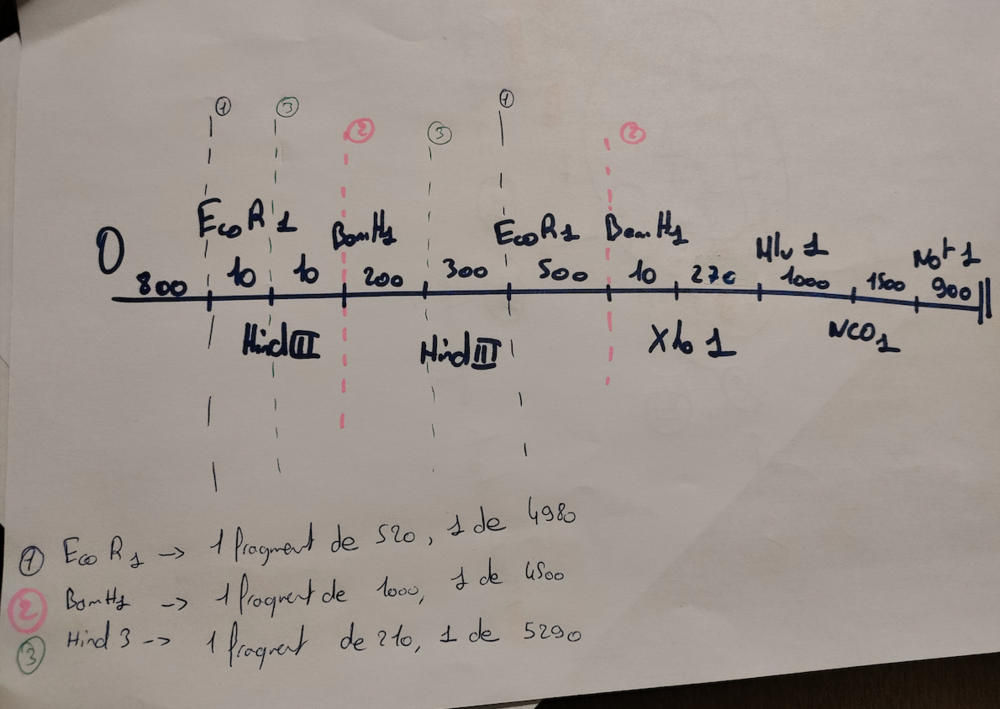 ① ③ ② ③ ① ②
EcoR1 BamH1 EcoR1 BamH1 Mlu1 Not1
0 800 10 10 200 300 500 10 270 1000 1500 900
HindIII HindIII Xho1 NCO1
① EcoR1 -> 1 fragment de 520, 1 de 4980
② BamH1 -> 1 fragment de 1000, 1 de 4500
③ Hind3 -> 1 fragment de 210, 1 de 5290